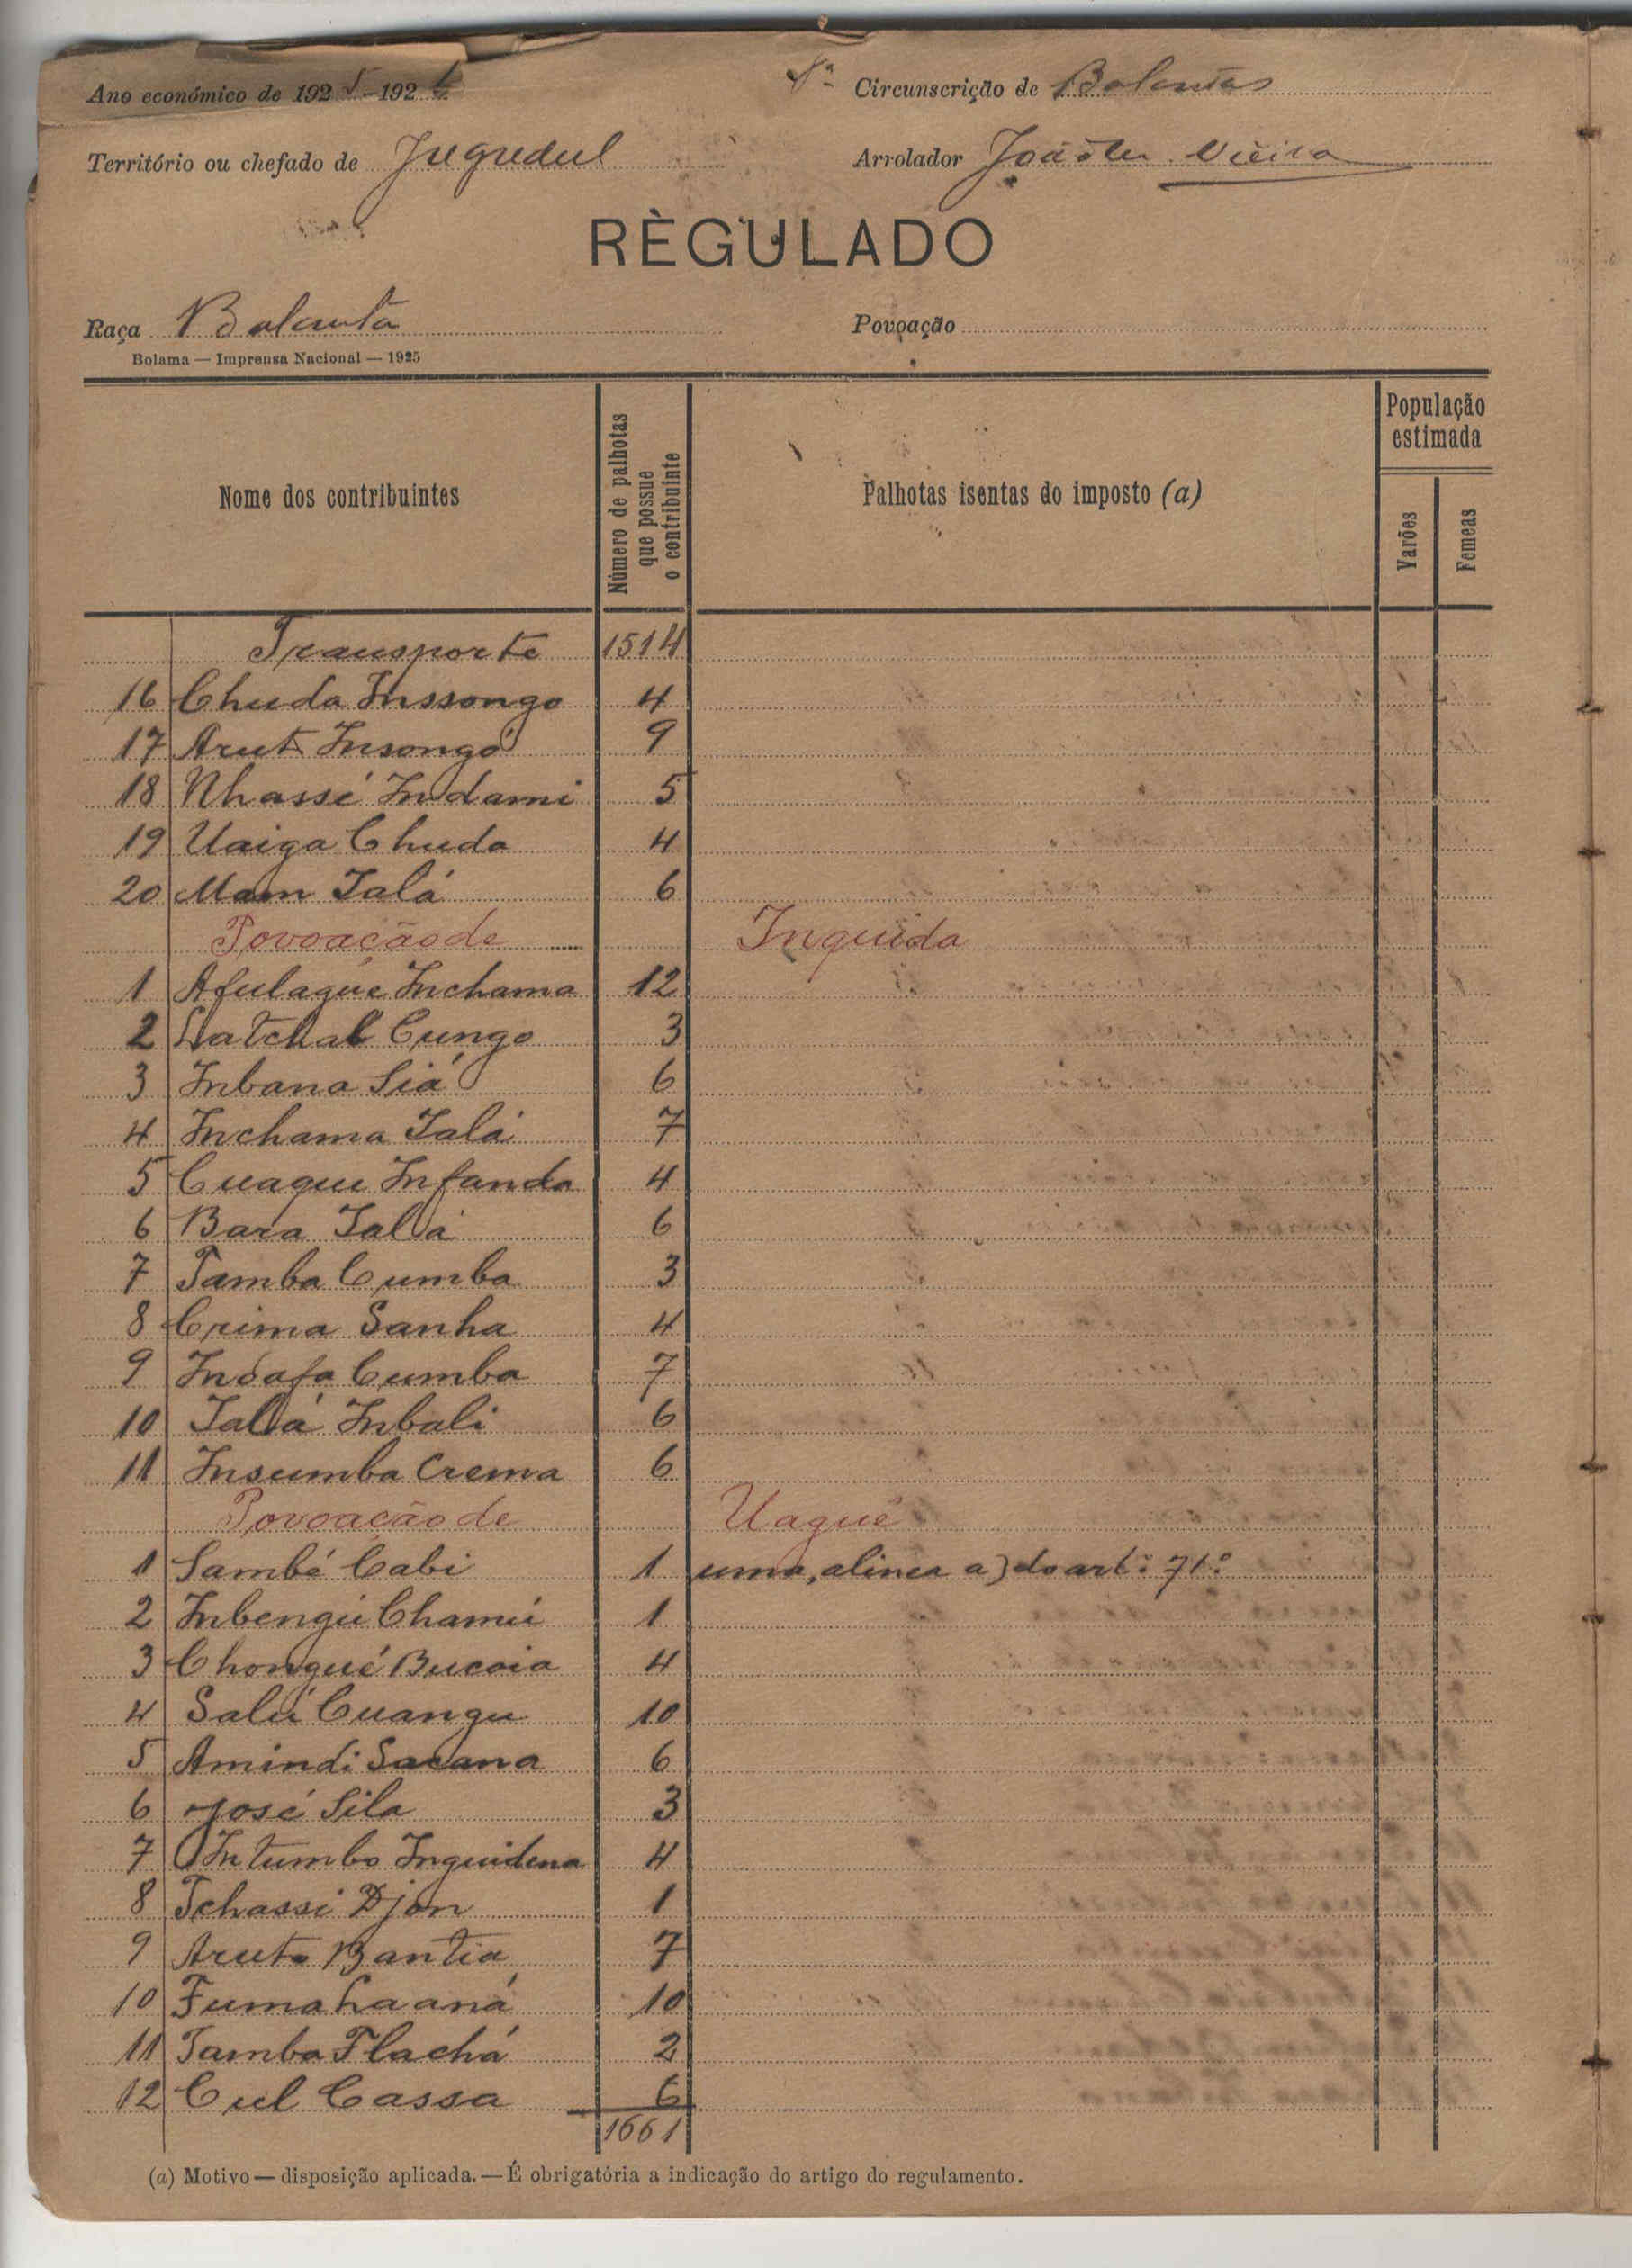 Ano económico de 1925-1926
8ª Circunscrição de Balantas
Território ou chefado de Jugudul
Arrolador Vieira
RÈGULADO
Raça Balanta
Povoação
Bolama — Imprensa Nacional — 1925
Nome dos contribuintes
Número de palhotas que possue o contribuinte
Palhotas isentas do imposto (a)
População estimada
Varões
Femeas
Transporte 1514
16 Chuda Inssongo 4
17 Arut Insongó 9
18 Nhassé Indami 5
19 Uaiga Chuda 4
20 Mam Ialá 6
Povoação de Inquida
1 Afulague Inchama 12
2 Latchal Cungo 3
3 Inbana Siá 6
4 Inchama Ialá 7
5 Cuaque Infanda 4
6 Bara Ialá 6
7 Tamba Cumba 3
8 Crima Sanha 4
9 Insafa Cumba 7
10 Ialá Inbali 6
11 Insumba Crema 6
Povoação de Uaque
1 Sambé Cabi 1 uma, alinea a) do artº 71º
2 Inbengú Chamú 1
3 Chongué Bucoia 4
4 Salú Cuangu 10
5 Amindi Sacana 6
6 José Sila 3
7 Intumbo Inquidena 4
8 Tchassi Djon 1
9 Aruto Bantia 7
10 Fuma haaná 10
11 Tamba Flachá 2
12 Cul Cassa 6
1661
(a) Motivo — disposição aplicada. — É obrigatória a indicação do artigo do regulamento.